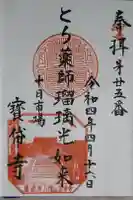 奉拝 第廿五番
令和四年四月十六日
とら薬師瑠璃光如来
十日市場
寳袋寺